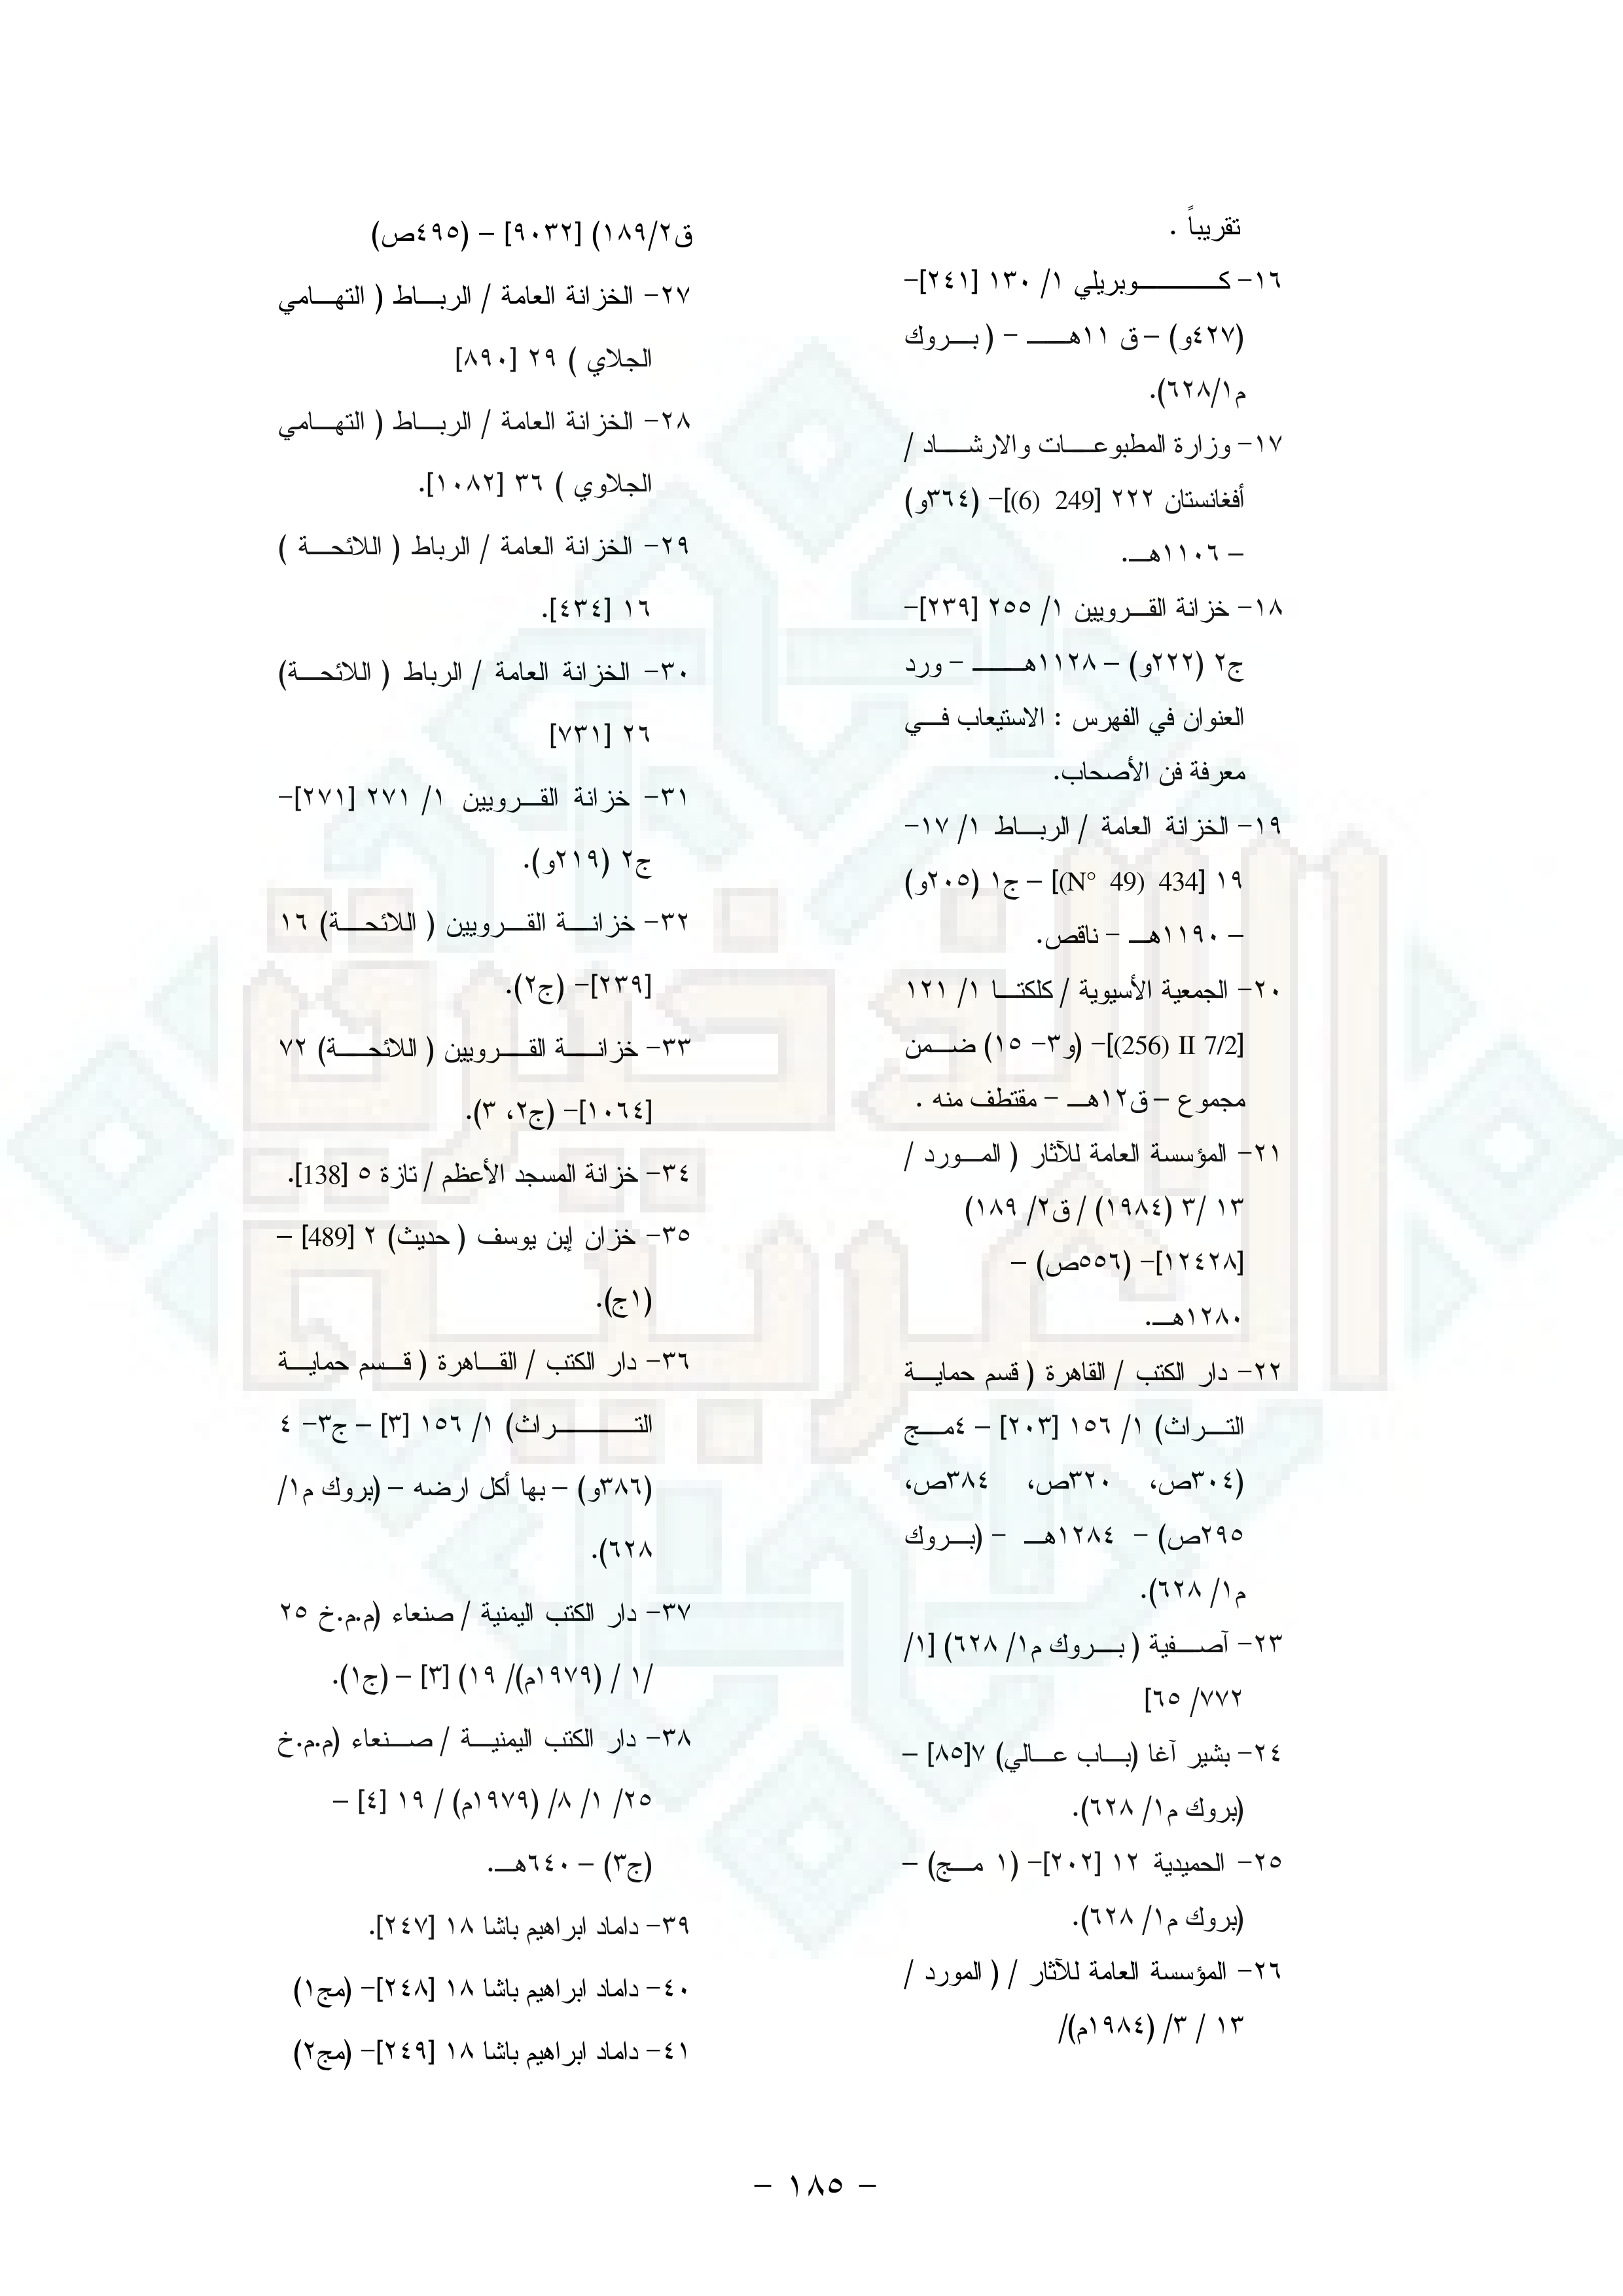 تقريباً .
١٦- كـــــــوبريلي ١/ ١٣٠ [٢٤١]-
(٤٢٧و) – ق ١١هــــ - ( بـــروك
م١/٦٢٨).
١٧- وزارة المطبوعـــات والارشـــاد /
أفغانستان ٢٢٢ [249 (6)]- (٣٦٤و)
– ١١٠٦هـ.
١٨- خزانة القـــرويين ١/ ٢٥٥ [٢٣٩]-
ج٢ (٢٢٢و) – ١١٢٨هـــــ - ورد
العنوان في الفهرس : الاستيعاب فـــي
معرفة فن الأصحاب.
١٩- الخزانة العامة / الربـــاط ١/ ١٧-
١٩ [434 (N° 49)] – ج١ (٢٠٥و)
– ١١٩٠هـ - ناقص.
٢٠- الجمعية الأسيوية / كلكتـــا ١/ ١٢١
[(256) II 7/2]- (و٣- ١٥) ضـــمن
مجموع – ق١٢هـ - مقتطف منه .
٢١- المؤسسة العامة للآثار ( المـــورد /
١٣ /٣ (١٩٨٤) / ق٢/ ١٨٩)
[١٢٤٢٨]- (٥٥٦ص) –
١٢٨٠هـ.
٢٢- دار الكتب / القاهرة ( قسم حمايـــة
التـــراث) ١/ ١٥٦ [٢٠٣] – ٤مـــج
(٣٠٤ص، ٣٢٠ص، ٣٨٤ص،
٢٩٥ص) - ١٢٨٤هـ - (بـــروك
م١/ ٦٢٨).
٢٣- آصـــفية ( بـــروك م١/ ٦٢٨) [١/
٧٧٢/ ٦٥]
٢٤- بشير آغا (بـــاب عـــالي) ٧[٨٥] –
(بروك م١/ ٦٢٨).
٢٥- الحميدية ١٢ [٢٠٢]- (١ مـــج) –
(بروك م١/ ٦٢٨).
٢٦- المؤسسة العامة للآثار / ( المورد /
١٣ / ٣/ (١٩٨٤م)/
ق١٨٩/٢) [٩٠٣٢] – (٤٩٥ص)
٢٧- الخزانة العامة / الربـــاط ( التهـــامي
الجلاي ) ٢٩ [٨٩٠]
٢٨- الخزانة العامة / الربـــاط ( التهـــامي
الجلاوي ) ٣٦ [١٠٨٢].
٢٩- الخزانة العامة / الرباط ( اللائحـــة )
١٦ [٤٣٤].
٣٠- الخزانة العامة / الرباط ( اللائحـــة)
٢٦ [٧٣١]
٣١- خزانة القـــرويين ١/ ٢٧١ [٢٧١]-
ج٢ (٢١٩و).
٣٢- خزانـــة القـــرويين ( اللائحـــة) ١٦
[٢٣٩]- (ج٢).
٣٣- خزانـــة القـــرويين ( اللائحـــة) ٧٢
[١٠٦٤]- (ج٢، ٣).
٣٤- خزانة المسجد الأعظم / تازة ٥ [138].
٣٥- خزان إبن يوسف ( حديث) ٢ [489] –
(١ج).
٣٦- دار الكتب / القـــاهرة ( قـــسم حمايـــة
التـــــــراث) ١/ ١٥٦ [٣] – ج٣- ٤
(٣٨٦و) – بها أكل ارضه – (بروك م١/
٦٢٨).
٣٧- دار الكتب اليمنية / صنعاء (م.م.خ ٢٥
/١ / (١٩٧٩م)/ ١٩) [٣] – (ج١).
٣٨- دار الكتب اليمنيـــة / صـــنعاء (م.م.خ
٢٥/ ١/ ٨/ (١٩٧٩م) / ١٩ [٤] –
(ج٣) – ٦٤٠هـ.
٣٩- داماد ابراهيم باشا ١٨ [٢٤٧].
٤٠- داماد ابراهيم باشا ١٨ [٢٤٨]- (مج١)
٤١- داماد ابراهيم باشا ١٨ [٢٤٩]- (مج٢)
– ١٨٥ –
الذخيرة
العربية